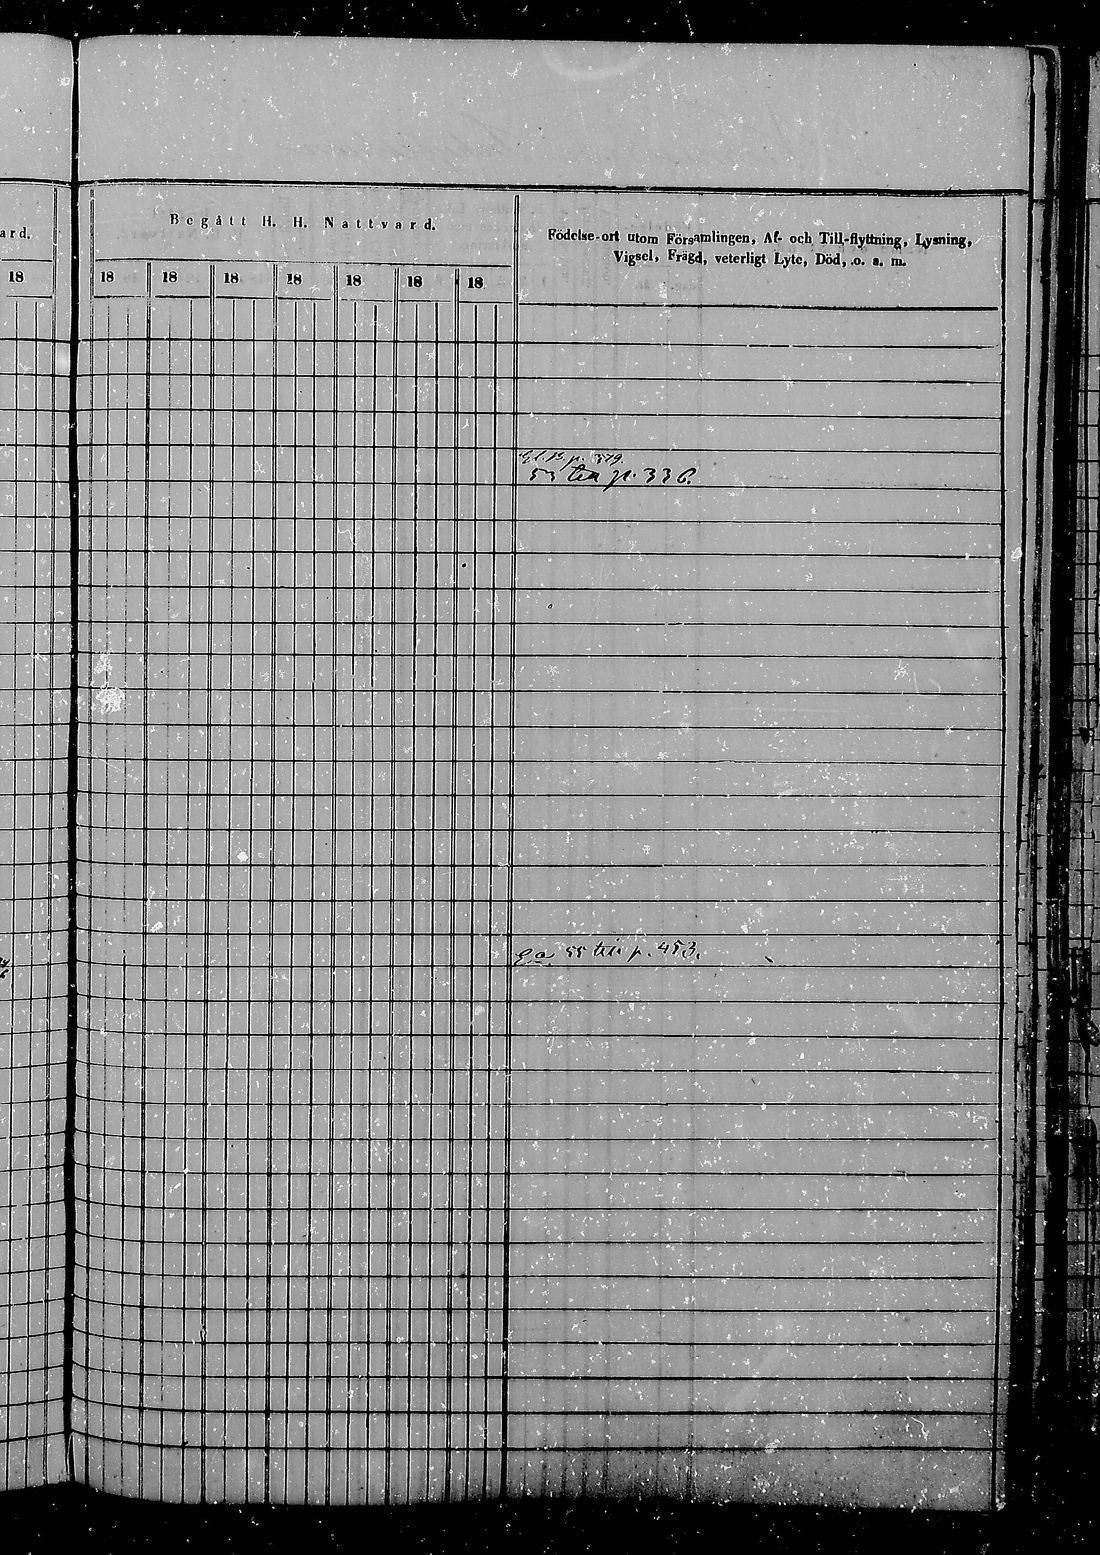 ard.
18
Begått H. H. Nattvard.
18 18 18 18 18 18 18
Födelse-ort utom Församlingen, Af- och Till-flyttning, Lysning,
Vigsel, Frägd, veterligt Lyte, Död, o. s. m.
p. 379
53 ten p. 336.
55 ten p. 453.